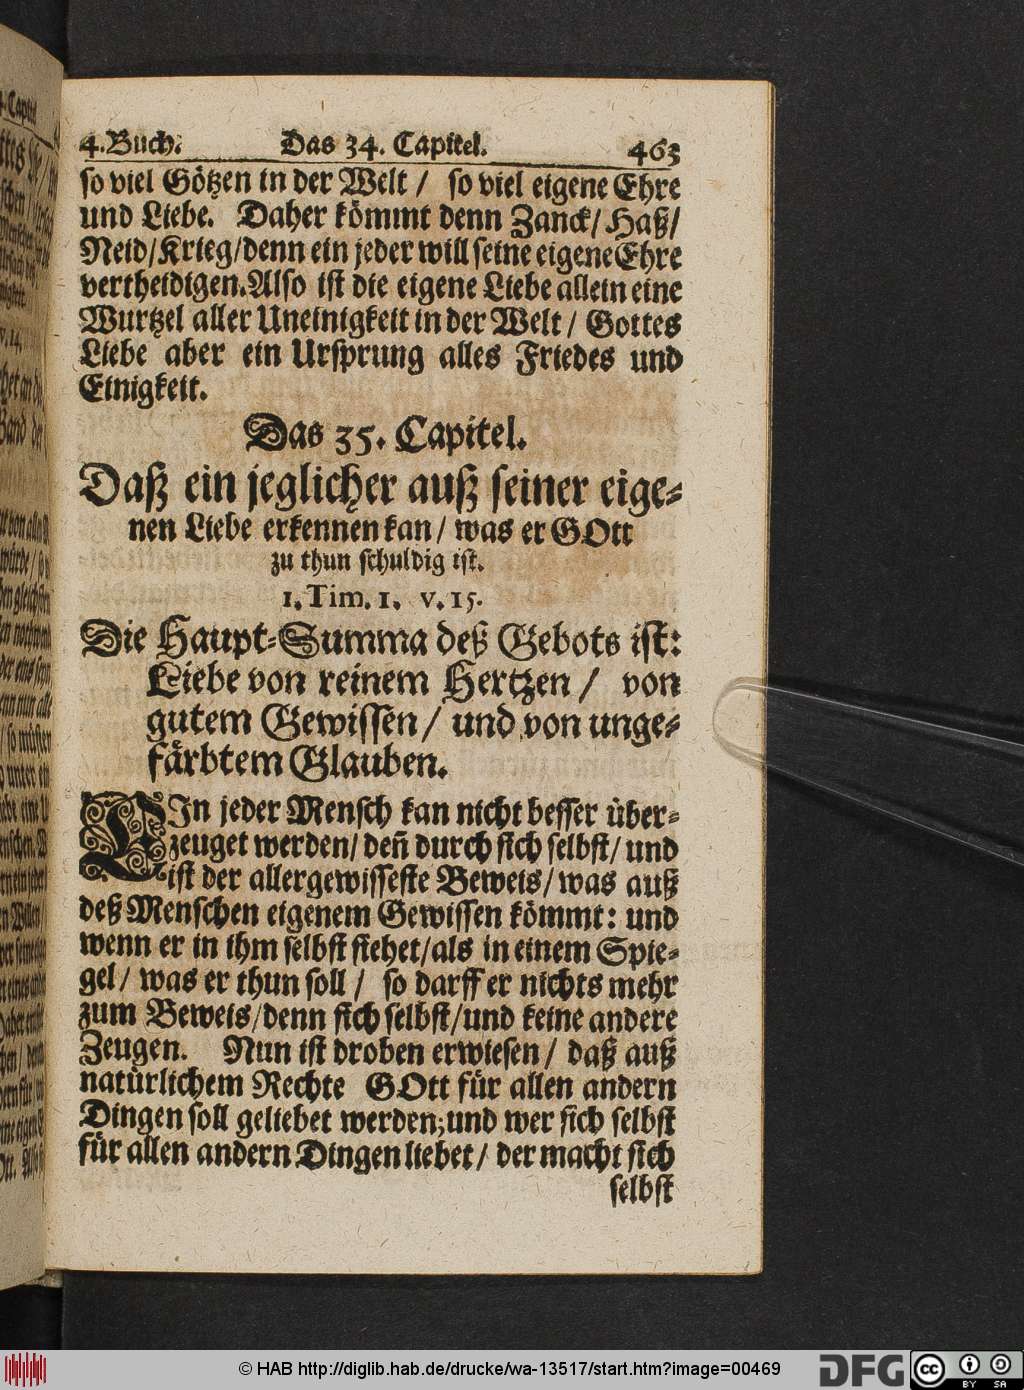 4. Buch. Das 34. Capitel. 463
so viel Götzen in der Welt / so viel eigene Ehre
und Liebe. Daher kömmt denn Zanck / Haß /
Neid / Krieg / denn ein jeder will seine eigene Ehre
vertheidigen. Also ist die eigene Liebe allein eine
Wurtzel aller Uneinigkeit in der Welt / Gottes
Liebe aber ein Ursprung alles Friedes und
Einigkeit.
Das 35. Capitel.
Daß ein jeglicher auß seiner eige-
nen Liebe erkennen kan / was er GOtt
zu thun schuldig ist.
1. Tim. 1. v. 15.
Die Haupt-Summa deß Gebots ist:
Liebe von reinem Hertzen / von
gutem Gewissen / und von unge-
färbtem Glauben.
EIn jeder Mensch kan nicht besser über-
zeuget werden / deñ durch sich selbst / und
ist der allergewisseste Beweis / was auß
deß Menschen eigenem Gewissen kömmt: und
wenn er in ihm selbst siehet / als in einem Spie-
gel / was er thun soll / so darff er nichts mehr
zum Beweis / denn sich selbst / und keine andere
Zeugen. Nun ist droben erwiesen / daß auß
natürlichem Rechte GOtt für allen andern
Dingen soll geliebet werden; und wer sich selbst
für allen andern Dingen liebet / der macht sich
selbst
© HAB http://diglib.hab.de/drucke/wa-13517/start.htm?image=00469
DFG
cc BY SA